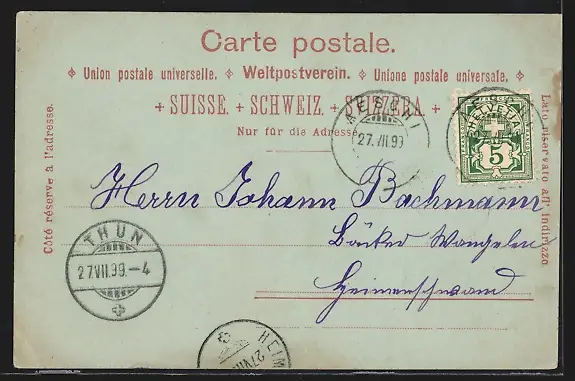 Carte postale.
Union postale universelle. Weltpostverein. Unione postale universale.
+ SUISSE. + SCHWEIZ. + SVIZZERA. +
Nur für die Adresse.
Côté réservé à l'adresse.
Lato riservato all' indirizzo.
AESCHI
27.VII.99
HELVETIA
5
Herrn Johann Bachmann
Bäcker Wangelen
Heimenschwand
THUN
27VII.99.-4
HEIM
27VII